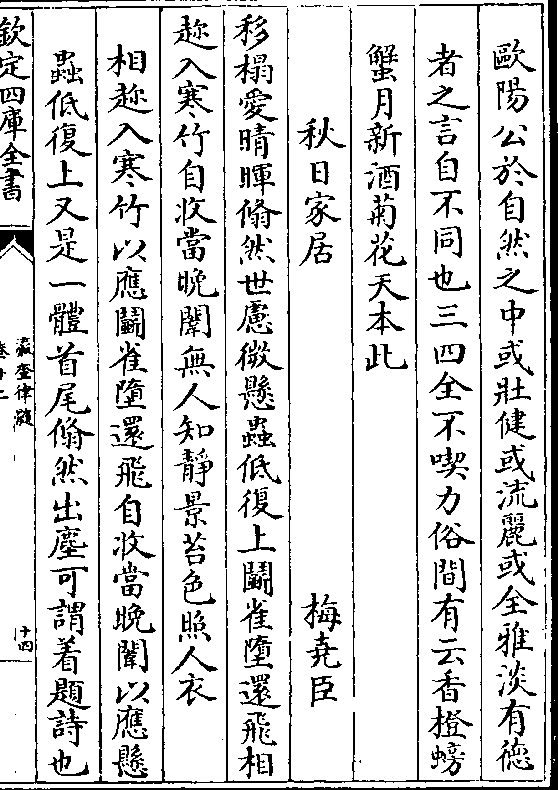 歐陽公於自然之中或壯健或流麗或全雅淡有德
者之言自不同也三四全不喫力俗間有云香橙螃
蟹月新酒菊花天本此
秋日家居
梅堯臣
移榻愛晴暉翛然世慮微懸蟲低復上鬬雀墮還飛相
趂入寒竹自收當晚闈無人知靜景苔色照人衣
相趂入寒竹以應鬬雀墮還飛自收當晚闈以應懸
蟲低復上又是一體首尾翛然出塵可謂着題詩也
欽定四庫全書
瀛奎律髓
卷十二
十四